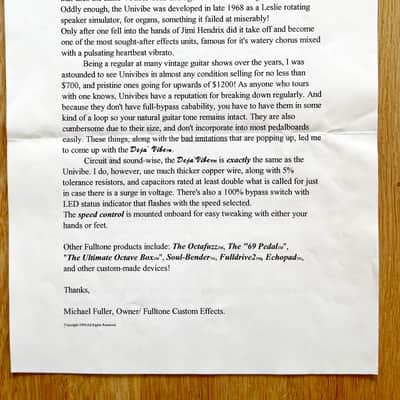 Oddly enough, the Univibe was developed in late 1968 as a Leslie rotating
speaker simulator, for organs, something it failed at miserably!
Only after one fell into the hands of Jimi Hendrix did it take off and become
one of the most sought-after effects units, famous for it's watery chorus mixed
with a pulsating heartbeat vibrato.
Being a regular at many vintage guitar shows over the years, I was
astounded to see Univibes in almost any condition selling for no less than
$700, and pristine ones going for upwards of $1200! As anyone who tours
with one knows, Univibes have a reputation for breaking down regularly. And
because they don't have full-bypass cabability, you have to have them in some
kind of a loop so your natural guitar tone remains intact. They are also
cumbersome due to their size, and don't incorporate into most pedalboards
easily. These things, along with the bad imitations that are popping up, led me
to come up with the Deja'Vibetm.
Circuit and sound-wise, the Deja'Vibetm is exactly the same as the
Univibe. I do, however, use much thicker copper wire, along with 5%
tolerance resistors, and capacitors rated at least double what is called for just
in case there is a surge in voltage. There's also a 100% bypass switch with
LED status indicator that flashes with the speed selected.
The speed control is mounted onboard for easy tweaking with either your
hands or feet.
Other Fulltone products include: The Octafuzztm, The "69 Pedaltm",
"The Ultimate Octave Boxtm", Soul-Bendertm, Fulldrive2tm, Echopadtm,
and other custom-made devices!
Thanks,
Michael Fuller, Owner/ Fulltone Custom Effects.